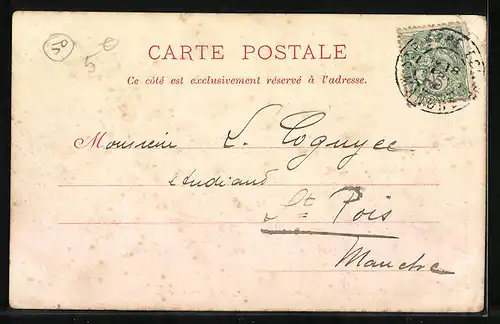 50
5
CARTE POSTALE
Ce côté est exclusivement réservé à l'adresse.
Monsieur L.
étudiant
St Pois
Manche